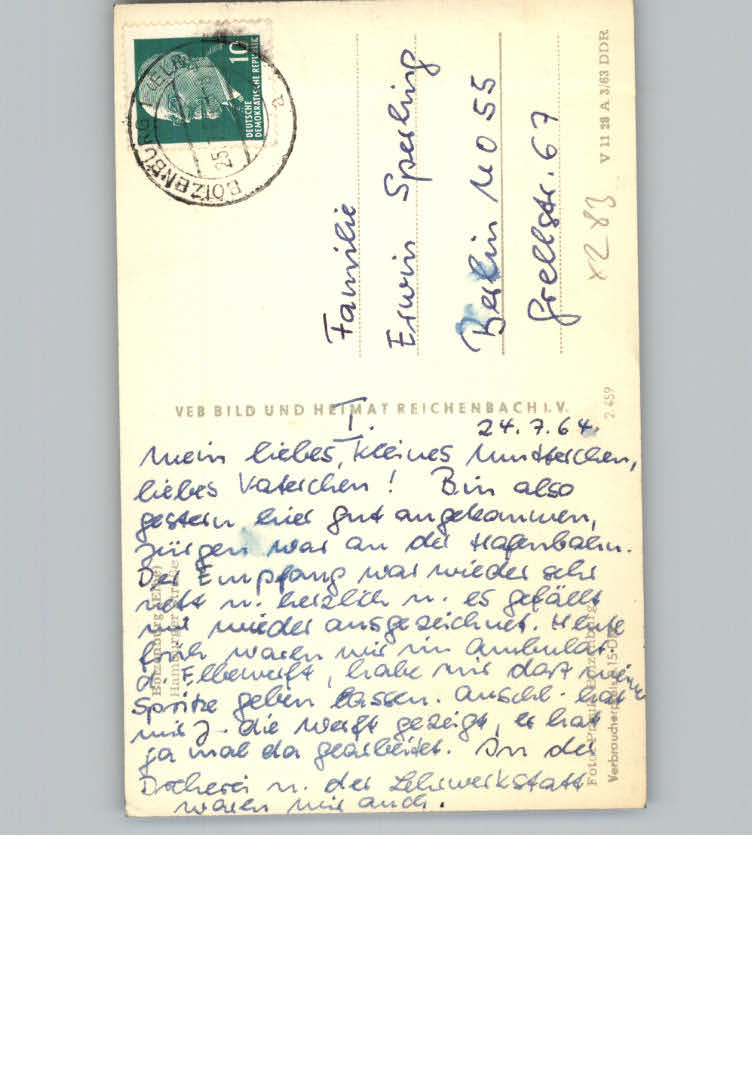 DEUTSCHE
DEMOKRATISCHE REPUBLIK
10
BOIZENBURG (ELBE)
25.
a
Familie
Erwin Sperling
Berlin NO 55
Grellstr. 67
V 11 28 A 3/63 DDR
x2 83
VEB BILD UND HEIMAT REICHENBACH I. V.
2 459
I.
24. 7. 64.
Mein liebes, kleines Mutterchen,
liebes Vaterchen! Bin also
gestern hier gut angekommen,
Jürgen war an der Hafenbahn.
Der Empfang war wieder sehr
nett u. herzlich u. es gefällt
mir wieder ausgezeichnet. Heute
früh waren wir im Ambular.
d. Elbewerft, habe mir dort meine
Spritze geben lassen. Anschl. hat
mir J. die Werft gezeigt, er hat
ja mal da gearbeitet. In der
Dreherei u. der Lehrwerkstatt
waren wir auch.
Boizenburg (Elbe)
Hamburger Straße
Foto: Boizenburg
Verbraucherpreis 15 DPf